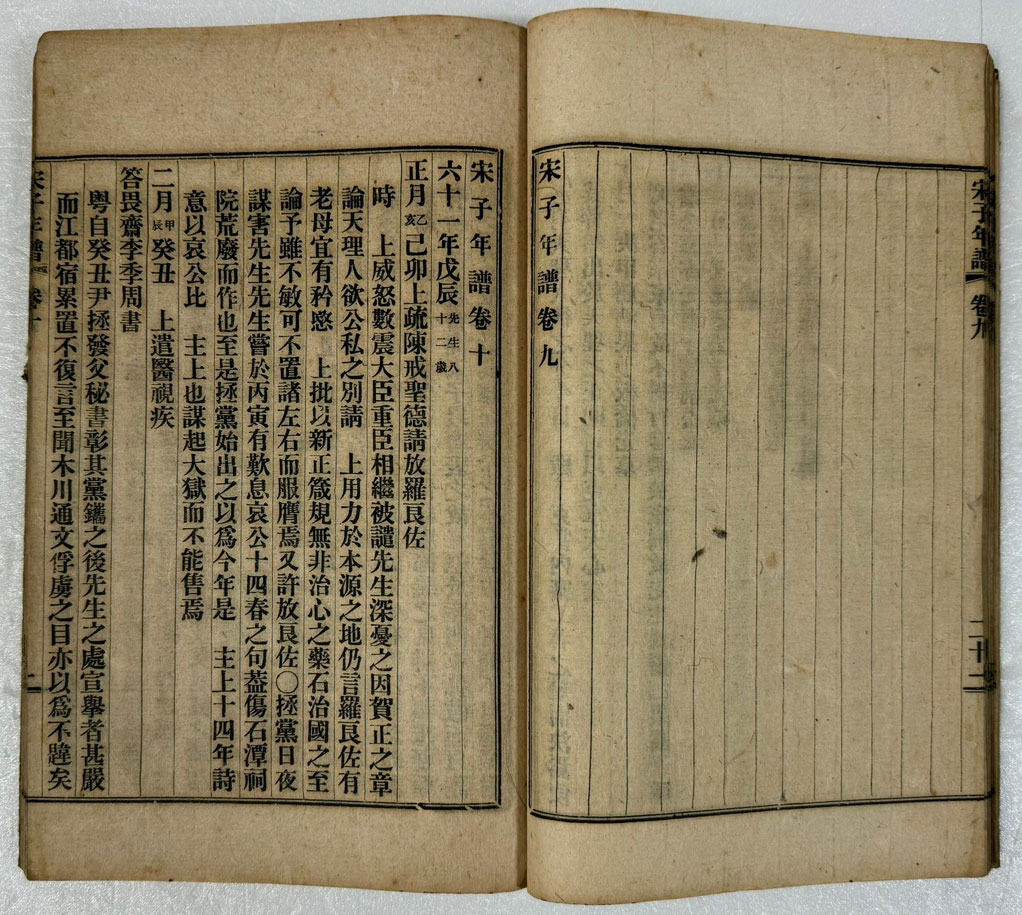 宋子年譜
卷九
二十二
宋子年譜卷九
宋子年譜卷十
六十一年戊辰先生八十二歲
正月乙亥己卯上疏陳戒聖德請放羅良佐
時 上威怒數震大臣重臣相繼被譴先生深憂之因賀正之章
論天理人欲公私之別請 上用力於本源之地仍言羅良佐有
老母宜有矜愍 上批以新正箴規無非治心之藥石治國之至
論予雖不敏可不置諸左右而服膺焉又許放良佐〇拯黨日夜
謀害先生先生嘗於丙寅有歎息哀公十四春之句葢傷石潭祠
院荒廢而作也至是拯黨始出之以爲今年是 主上十四年詩
意以哀公比 主上也謀起大獄而不能售焉
二月甲辰癸丑 上遣醫視疾
答畏齋李季周書
粤自癸丑尹拯發父秘書彰其黨鑴之後先生之處宣擧者甚嚴
而江都宿累置不復言至聞木川通文俘虜之目亦以爲不韙矣
宋子年譜
卷十
一